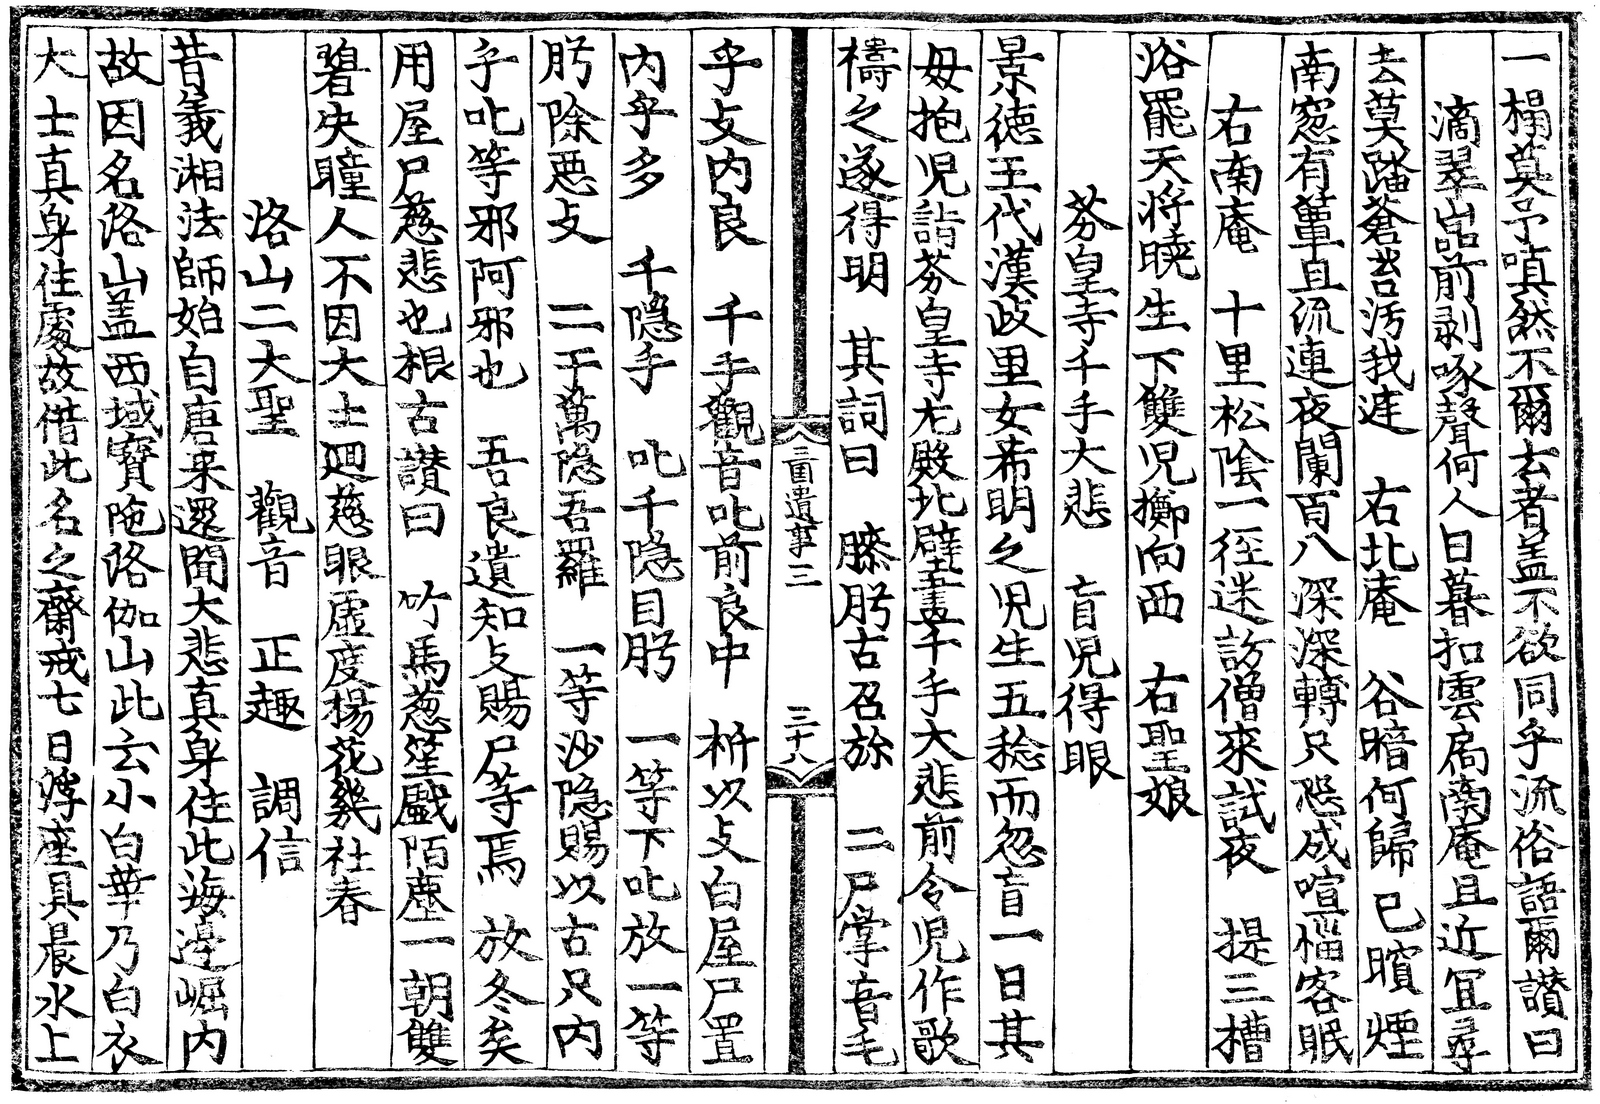 一榻莫予嗔然不爾云者盖不欲同乎流俗語爾讃曰
滴翠嵓前剥啄聲何人日暮扣雲扄南庵且近冝尋
去莫踏蒼苔汚我逹　右北庵　谷暗何歸已暝煙
南窓有簟且流連夜闌百八深深轉只恐成喧惱客眠
右南庵　十里松隂一徑迷訪僧來試夜　提三槽
浴罷天将曉生下雙児擲向西　右聖娘
芬皇寺千手大悲　盲児得眼
景徳王代漢歧里女希明之児生五稔而忽盲一日其
毋抱児詣芬皇寺左殿北壁畫千手大悲前令児作歌
禱之遂得明　其詞曰　膝肹古召旀　二尸掌音毛
三囯遺事三　三十八
乎攴內良　千手觀音叱前良中　祈以攴白屋尸置
內乎多　千隠手　叱千隠目肹　一等下叱放一等
肹除惡攴　二于萬隠吾羅　一等沙隠賜以古只內
乎叱等邪阿邪也　吾良遺知攴賜尸等焉　放冬矣
用屋尸慈悲也根古讃曰　竹馬葱笙戱陌塵一朝雙
碧失瞳人不因大士迴慈眼虚度楊花幾社春
洛山二大聖　觀音　正趣　調信
昔義湘法師始自唐来還聞大悲真身住此海邊崛內
故因名洛山盖西域寶陁洛伽山此云小白華乃白衣
大士真身住處故借此名之齋戒七日浮座具晨水上